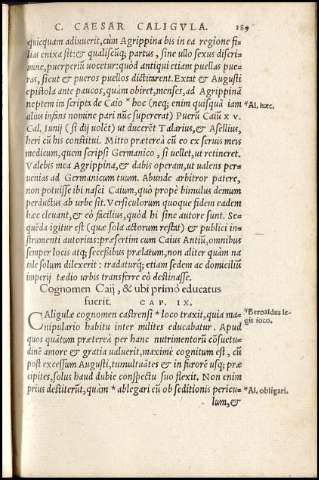 C. CAESAR CALIGVLA. 189
quicquàm adiuuerit, cùm Agrippina bis in ea regione fi-
lias enixa sit: & qualiscũq; partus, sine ullo sexus discri-
mine, puerperiũ uocetur: quòd antiqui etiam puellas pue-
ras, sicut & pueros puellos dictitarent. Extat & Augusti
epistola ante paucos, quàm obiret, menses, ad Agrippinã
neptem in scripta de Caio * hoc (neq; enim quisquã iam
*Al, hæc.
alius infans nomine pari nũc supererat) Puerũ Caiũ x v.
Cal. Iunij (si dij uolẽt) ut ducerẽt Talarius, & Asellius,
heri cũ his constitui. Mitto prætereà cũ eo ex seruis meis
medicum, quem scripsi Germanico, si uellet, ut retineret.
Valebis mea Agrippina, & dabis operam, ut ualens per-
uenias ad Germanicum tuum. Abunde arbitror patere,
non potuisse ibi nasci Caium, quò propè bimulus demum
perductus ab urbe sit. Versiculorum quoque fidem eadem
hæc eleuant, & eò facilius, quòd hi sine autor sunt. Se-
quẽda igitur est (quæ sola actorum restat) & publici in-
strumenti autoritas: præsertim cum Caius Antiũ, omnibus
semper locis atq; secessibus prælatum, non aliter quàm na
tale solum dilexerit: tradaturq; etiam sedem ac domiciliũ
imperij tædio urbis transferre eò destinasse.
Cognomen Caij, & ubi primò educatus
fuerit. CAP. IX.
CAligulæ cognomen castrensi * loco traxit, quia ma-
*Beroaldus le-
git ioco.
nipulario habitu inter milites educabatur. Apud
quos quàtum prætereà per hanc nutrimentorũ cõsuetu-
dinẽ amore & gratia ualuerit, maximè cognitum est, cũ
post excessum Augusti, tumultuãtes & in furorẽ usq; præ
cipites, solus haud dubiè conspectu suo flexit. Non enim
prius destiterũt, quàm * ablegari cũ ob seditionis pericu-
*Al, obligari.
lum, &